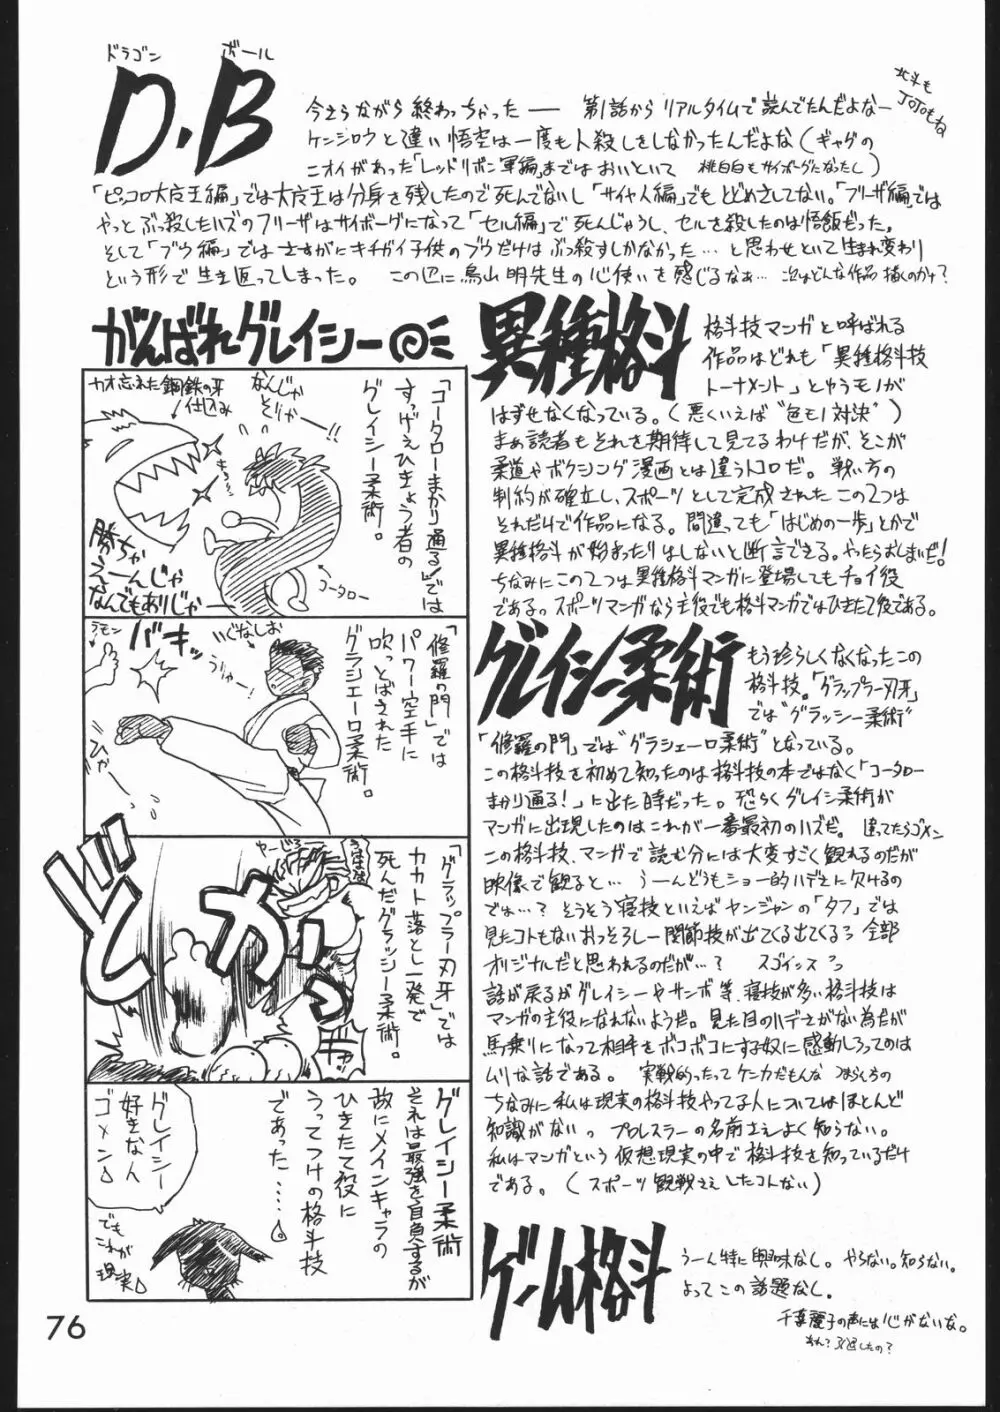 ドラゴン ボール
D.B
北斗も
JOJOもね
今さらながら終わっちゃった―― 第1話からリアルタイムで読んでたんだよなー
ケンジロウと違い悟空は一度も人殺しをしなかったんだよな(ギャグの
ニオイがあった「レッドリボン軍編」まではおいといて 桃白白もサイボーグになったし)
「ピッコロ大魔王編」では大魔王は分身を残したので死んでないし「サイヤ人編」でもとどめさしてない。「フリーザ編」では
やっとぶっ殺したハズのフリーザはサイボーグになって「セル編」で死んじゃうし、セルを殺したのは悟飯だった。
そして「ブウ編」ではさすがにキチガイ子供のブウだけはぶっ殺すしかなかった…と思わせといて生まれ変わり
という形で生き返ってしまった。 この辺に鳥山明先生の心使いを感じるなぁ… 次はどんな作品描くのかナ?
がんばれグレイシー
「コータローまかり通る!」では
すっげえひきょう者の
グレイシー柔術。
カオ忘れた鋼鉄の牙
仕込み
なんじゃ
そりゃー!!
勝ちゃ
えーんじゃ
なんでもありじゃー
コータロー
「修羅の門」では
パワー空手に
吹っとばされた
グラシエーロ柔術。
ラモン
バキッ
いぐなしお
「グラップラー刃牙」では
カカト落とし一発で
死んだグラッシー柔術。
ドカッ
グレイシー柔術
それは最強を自負するが
故にメインキャラの
ひきたて役に
うってつけの格斗技
であった……。
グレイシー
好きな人
ゴメン
でも
これが
現実
異種格斗
格斗技マンガと呼ばれる
作品はどれも「異種格斗技
トーナメント」とゆうモノが
はずせなくなっている。(悪くいえば"色もの対決")
まぁ読者もそれを期待して見てるわけだが、そこが
柔道やボクシング漫画とは違うトコロだ。 戦い方の
制約が確立し、スポーツとして完成されたこの2つは
それだけで作品になる。間違っても「はじめの一歩」とかで
異種格斗が始まったりはしないと断言できる。やったらおしまいだ!
ちなみにこの2つは異種格斗マンガに登場してもチョイ役
である。スポーツマンガなら主役でも格斗マンガではひきたて役である。
グレイシー柔術
もう珍らしくなくなったこの
格斗技。「グラップラー刃牙」
では"グラッシー柔術"
「修羅の門」では"グラシエーロ柔術"となっている。
この格斗技を初めて知ったのは格斗技の本ではなく「コータロー
まかり通る!」に出た時だった。恐らくグレイシー柔術が
マンガに出現したのはこれが一番最初のハズだ。 違ってたらゴメン
この格斗技、マンガで読む分には大変すごく観れるのだが
映像で観ると… うーんどうもショー的ハデさに欠けるの
では…? そうそう寝技といえばヤンジャンの「タフ」では
見たコトもないおっそろしー関節技が出てくる出てくる 全部
オリジナルだと思われるのだが…? スゴインスっ
話が戻るがグレイシーやサンボ等、寝技が多い格斗技は
マンガの主役になれないようだ。見た目のハデさがない為だが
馬乗りになって相手をボコボコにする奴に感動しろってのは
ムリな話である。 実戦的ったってケンカだもんな
ちなみに私は現実の格斗技やってる人についてはほとんど
知識がない。プロレスラーの名前さえよく知らない。
私はマンガという仮想現実の中で格斗技を知っているだけ
である。(スポーツ観戦さえしたコトない)
ゲーム格斗
うーん特に興味なし。やらない。知らない。
よってこの話題なし。
千葉麗子の声には心がないな。
76